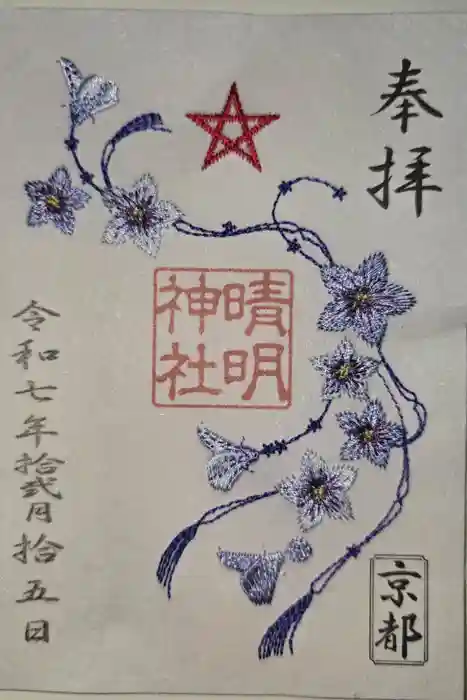 奉拝
晴明
神社
令和七年拾弐月拾五日
京都